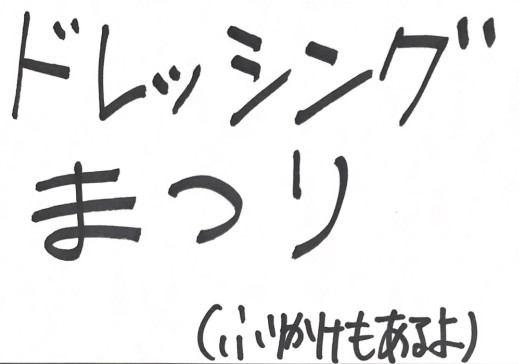 ドレッシング
まつり
(ふりかけもあるよ)